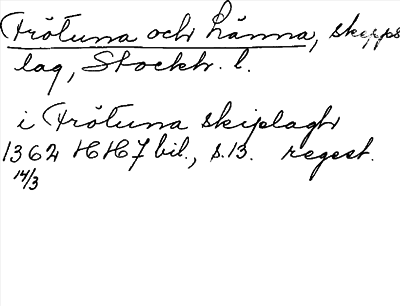 Frötuna och Länna, skepps
lag, Stockh. l.
i Frötuna skiplagh
1362 HH 7 bil., s. 13. regest.
14/3